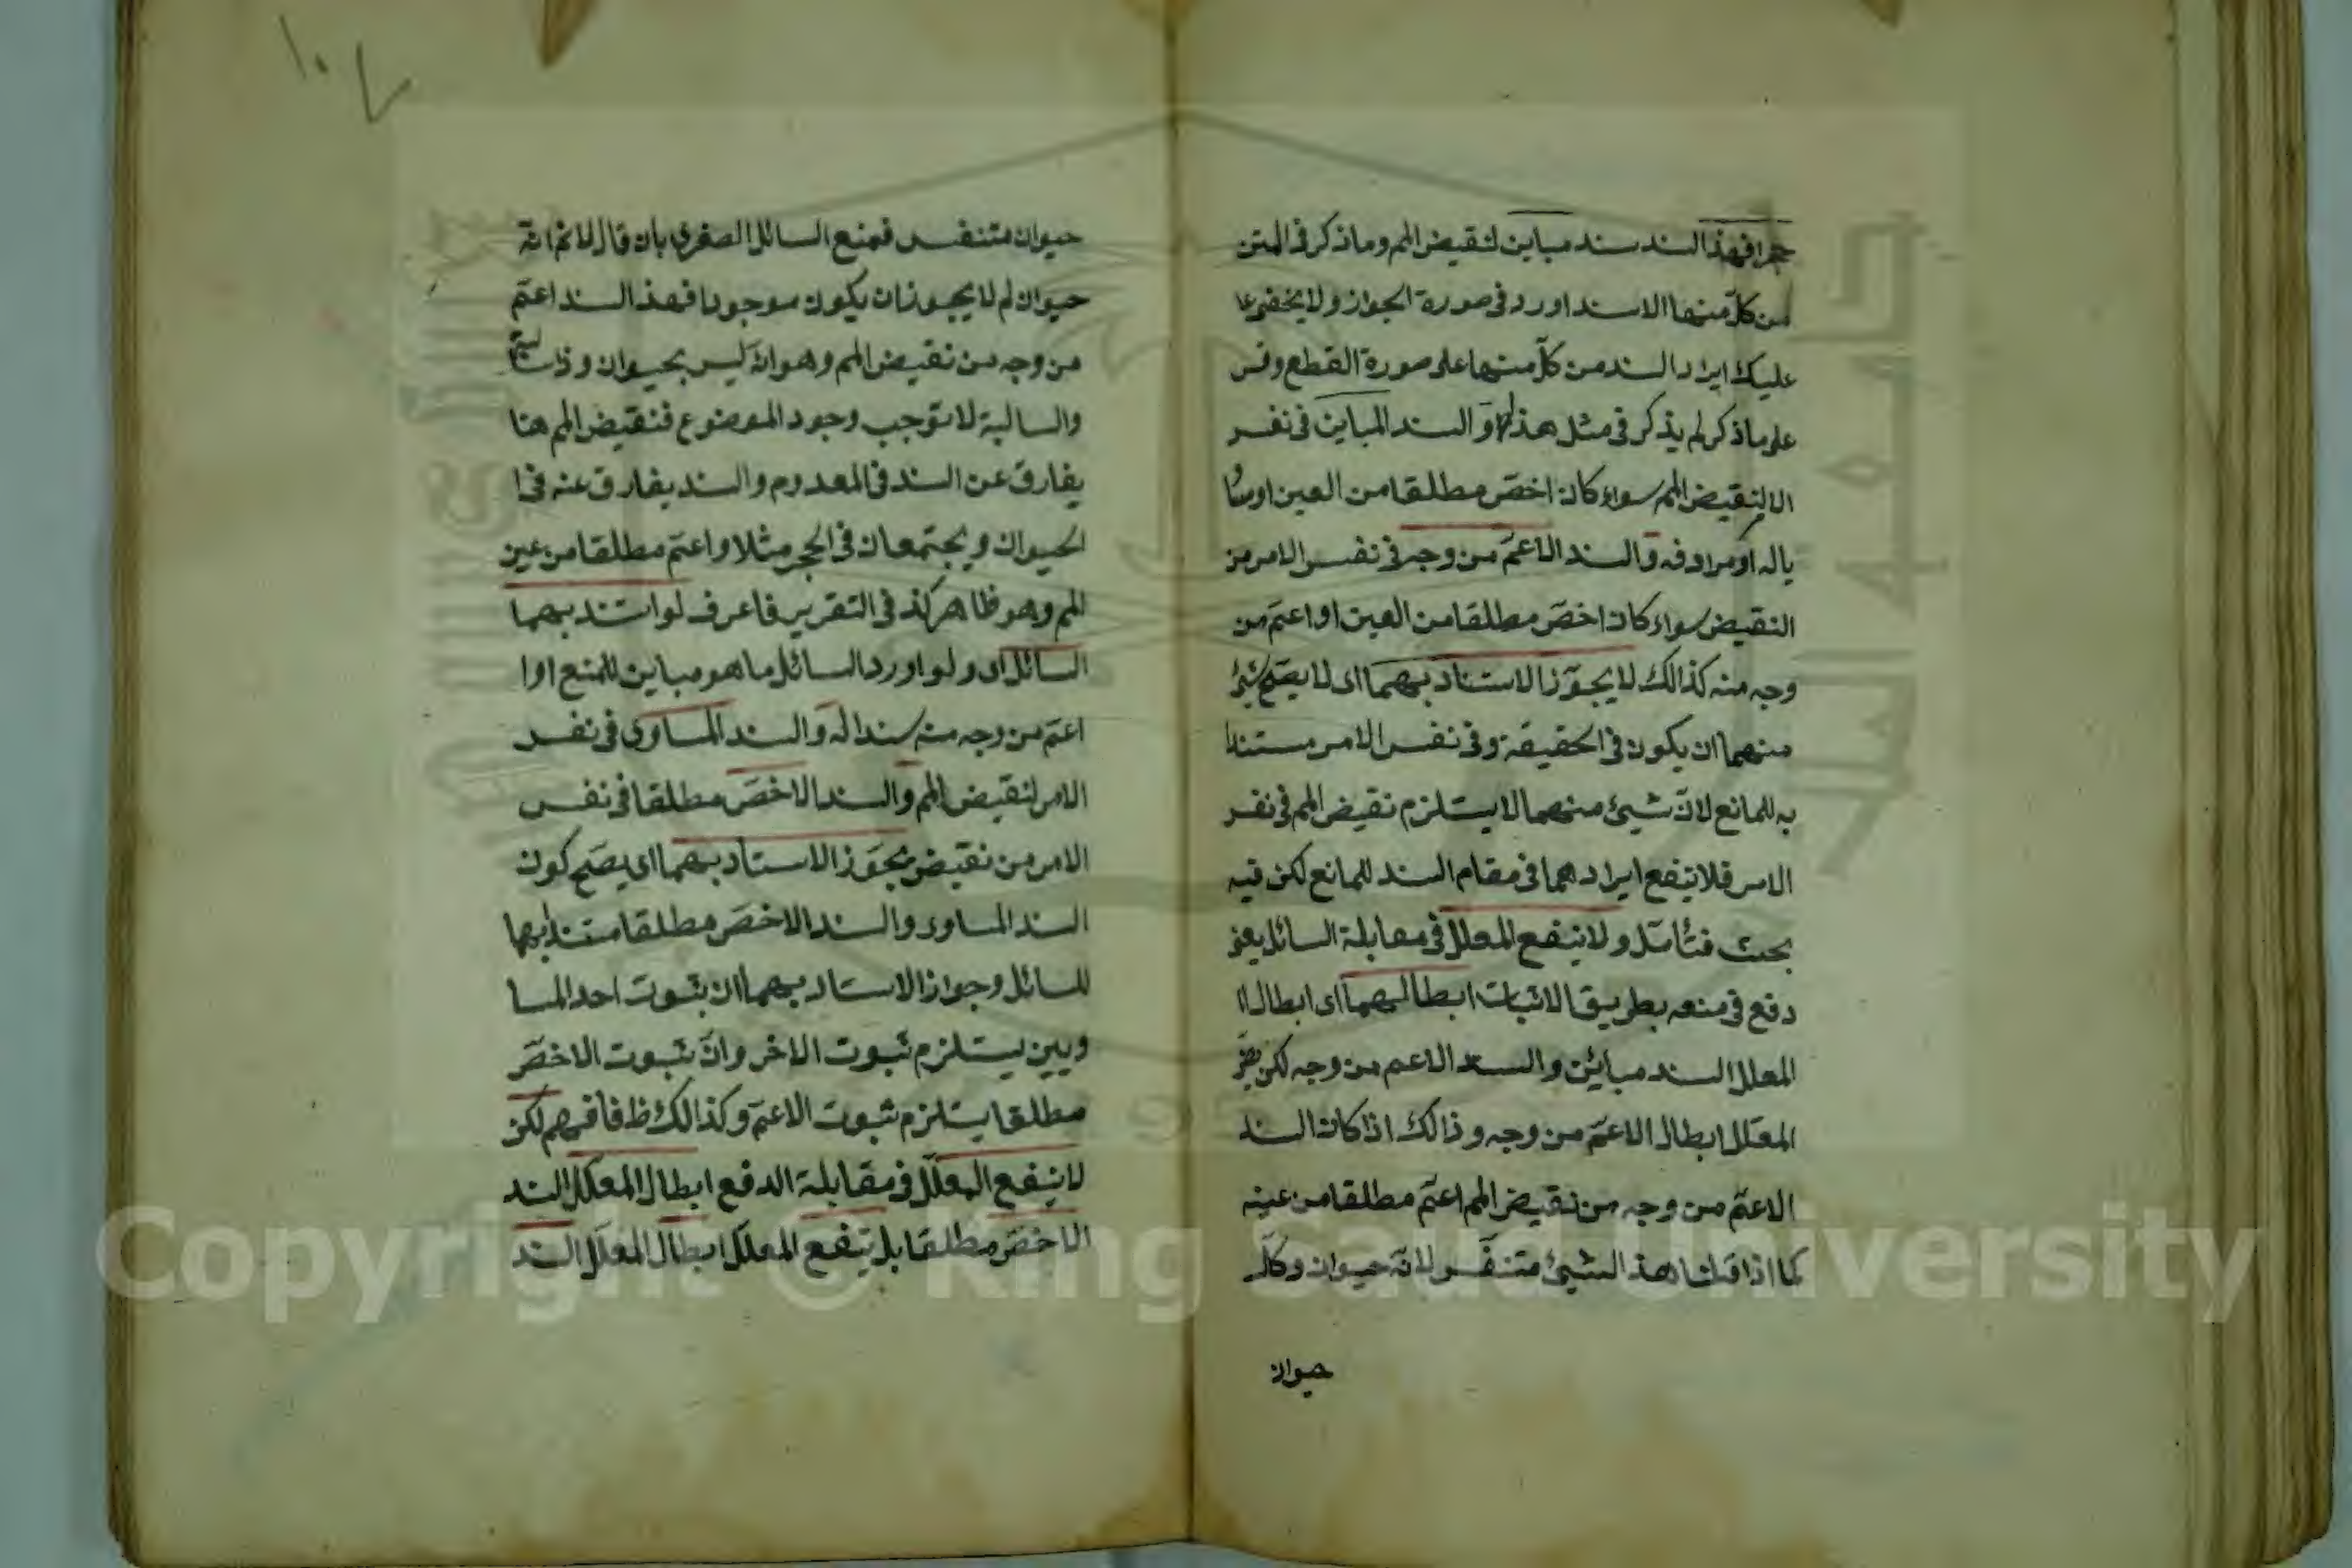 حجرا فهذا السند سند مباين لنقيض المم وما ذكر فى المتن
من كلّ منهما الا سند اورد فى صورة الجواز ولا يخفى عا
عليك ايراد السند من كلّ منهما على صورة القطع وقس
على ما ذكر لم يذكر فى مثل هذا و السند المباين فى نفس
الا لنقيض المم سواء كان اخصّ مطلقا من العين او مسا
يا له او مرادفه والسند الاعمّ من وجه فى نفس الامر من
النقيض سواء كان اخصّ مطلقا من العين او اعمّ من
وجه منه كذالك لا يجوّز الاستناد بهما اى لا يصحّ شئ
منهما ان يكون فى الحقيقة وفى نفس الامر مستندا
به للمانع لانّ شيئ منهما لا يستلزم نقيض المم فى نفس
الامر فلا ينفع ايرادهما فى مقام السند للمانع لكن فيه
بحث فتأمّل ولا ينفع المعلل فى مقابلة السائل يعنى
دفع فى منعه بطريق الاثبات ابطالهما اى ابطال ا
المعلل السند مبائن والسند الاعم من وجه لكن
المعلل ابطال الاعمّ من وجه وذالك اذا كان السند
الاعمّ من وجه من نقيض المم اعمّ مطلقا من عينه
كما اذا قلنا هذ الشيئ متنفّس لانّه حيوان وكلّ
حيوان
١٠٧
حيوان متنفس فمنع السائل الصغرى بان قال لا نم انّه
حيوان لم لا يجوز ان يكون موجودا فهذ السند اعمّ
من وجه من نقيض المم وهو انّه ليس بحيوان و
والسالبة لا توجب وجود الموضوع فنقيض المم هنا
يفارق عن السند فى المعدوم والسند يفارق عنه فى ا
الحيوان ويجتمعان فى الحجر مثلا واعمّ مطلقا من عين
المم وهو ظاهر كذ فى التقرير فاعرف لو استند بهما
السائل اى ولو اورد السائل ما هو مباين للمنع او ا
اعمّ من وجه منه سندا له والسند المساوى فى نفس
الامر لنقيض المم والسند الاخصّ مطلقا فى نفس
الامر من نقيض يجوّز الاستناد بهما اى يصحّ كون
السند المساوى والسند الاخصّ مطلقا مستندا بهما
للسائل وجواز الاستناد بهما ان ثبوت احد المسا
ويين يستلزم ثبوت الاخر وانّ ثبوت الاخصّ
مطلقا يستلزم ثبوت الاعمّ وكذالك ظ فافهم لكن
لا ينفع المعلّل فى مقابلة الدفع ابطال المعلّل السند
الاخصّ مطلقا بل ينفع المعلّل ابطال المعلّل السند
Copyright © King Saud University